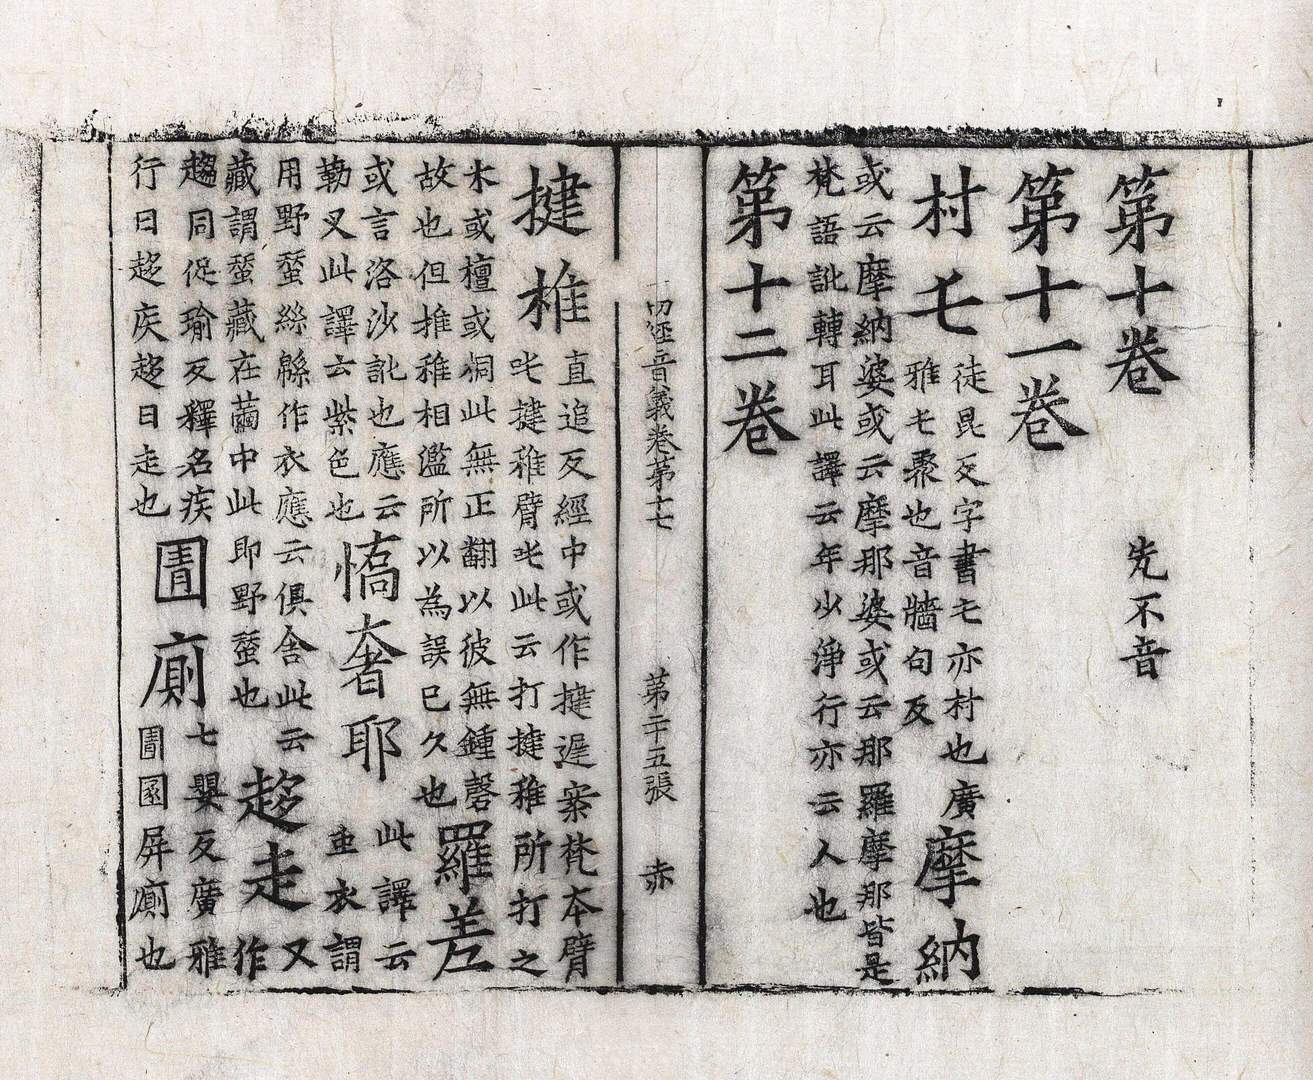 第十卷　先不音
第十一卷
村乇　徒昆反字書乇亦村也廣
雅乇聚也音牆句反　摩納
或云摩納婆或云摩那婆或云那羅摩那皆是
梵語訛轉耳此譯云年少淨行亦云人也
第十二卷
一切經音義卷第十七　第二十五張　赤
揵椎　直追反經中或作揵遲案梵本臂
吒揵稚臂吒此云打揵稚所打之
木或檀或桐此無正翻以彼無鍾磬
故也但椎稚相濫所以為誤已久也　羅差
或言洛沙訛也應云
勒叉此譯云紫色也　憍奢耶　此譯云
虫衣謂
用野蠶絲緜作衣應云俱舍此云
藏謂蠶藏在繭中此即野蠶也　趍走　又作
趨同促瑜反釋名疾
行曰趍疾趍曰走也　圊廁　七嬰反廣雅
圊圂屏廁也